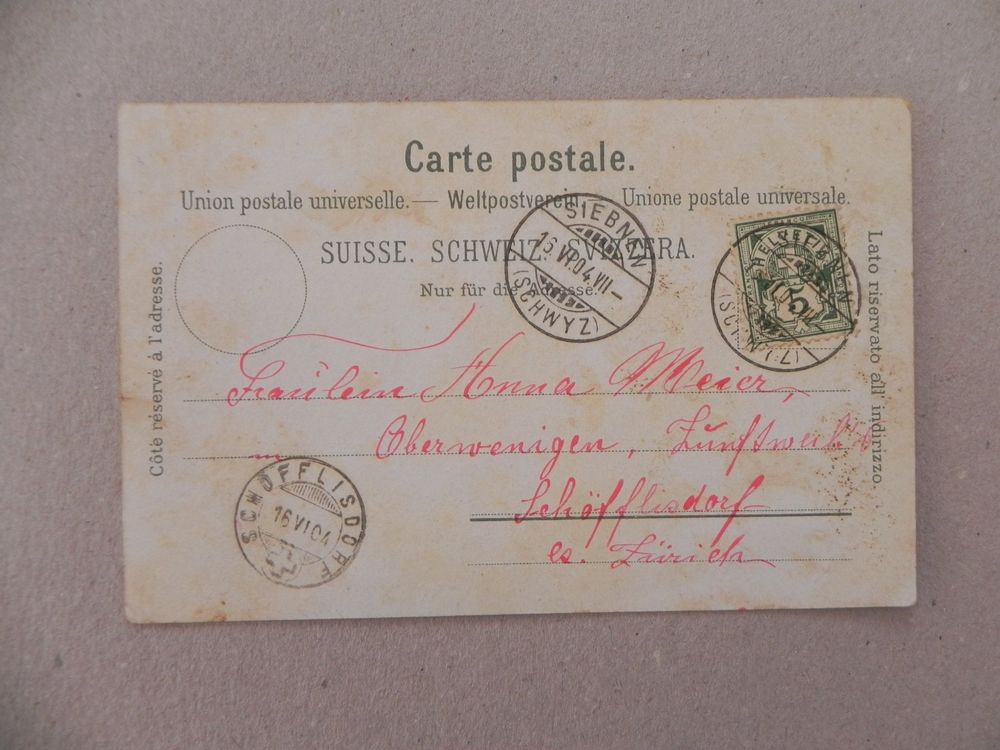 Carte postale.
Union postale universelle. — Weltpostverein. Unione postale universale.
SUISSE. SCHWEIZ. SVIZZERA.
Nur für die Adresse.
Côté réservé à l'adresse.
Lato riservato all' indirizzo.
SIEBNEN
16.VI.04.VII–
(SCHWYZ)
HELVETIA
5
Fräulein Anna Meier,
in Oberwenigen,
Schöfflisdorf
Zürich
SCHÖFFLISDORF
16 VI 04